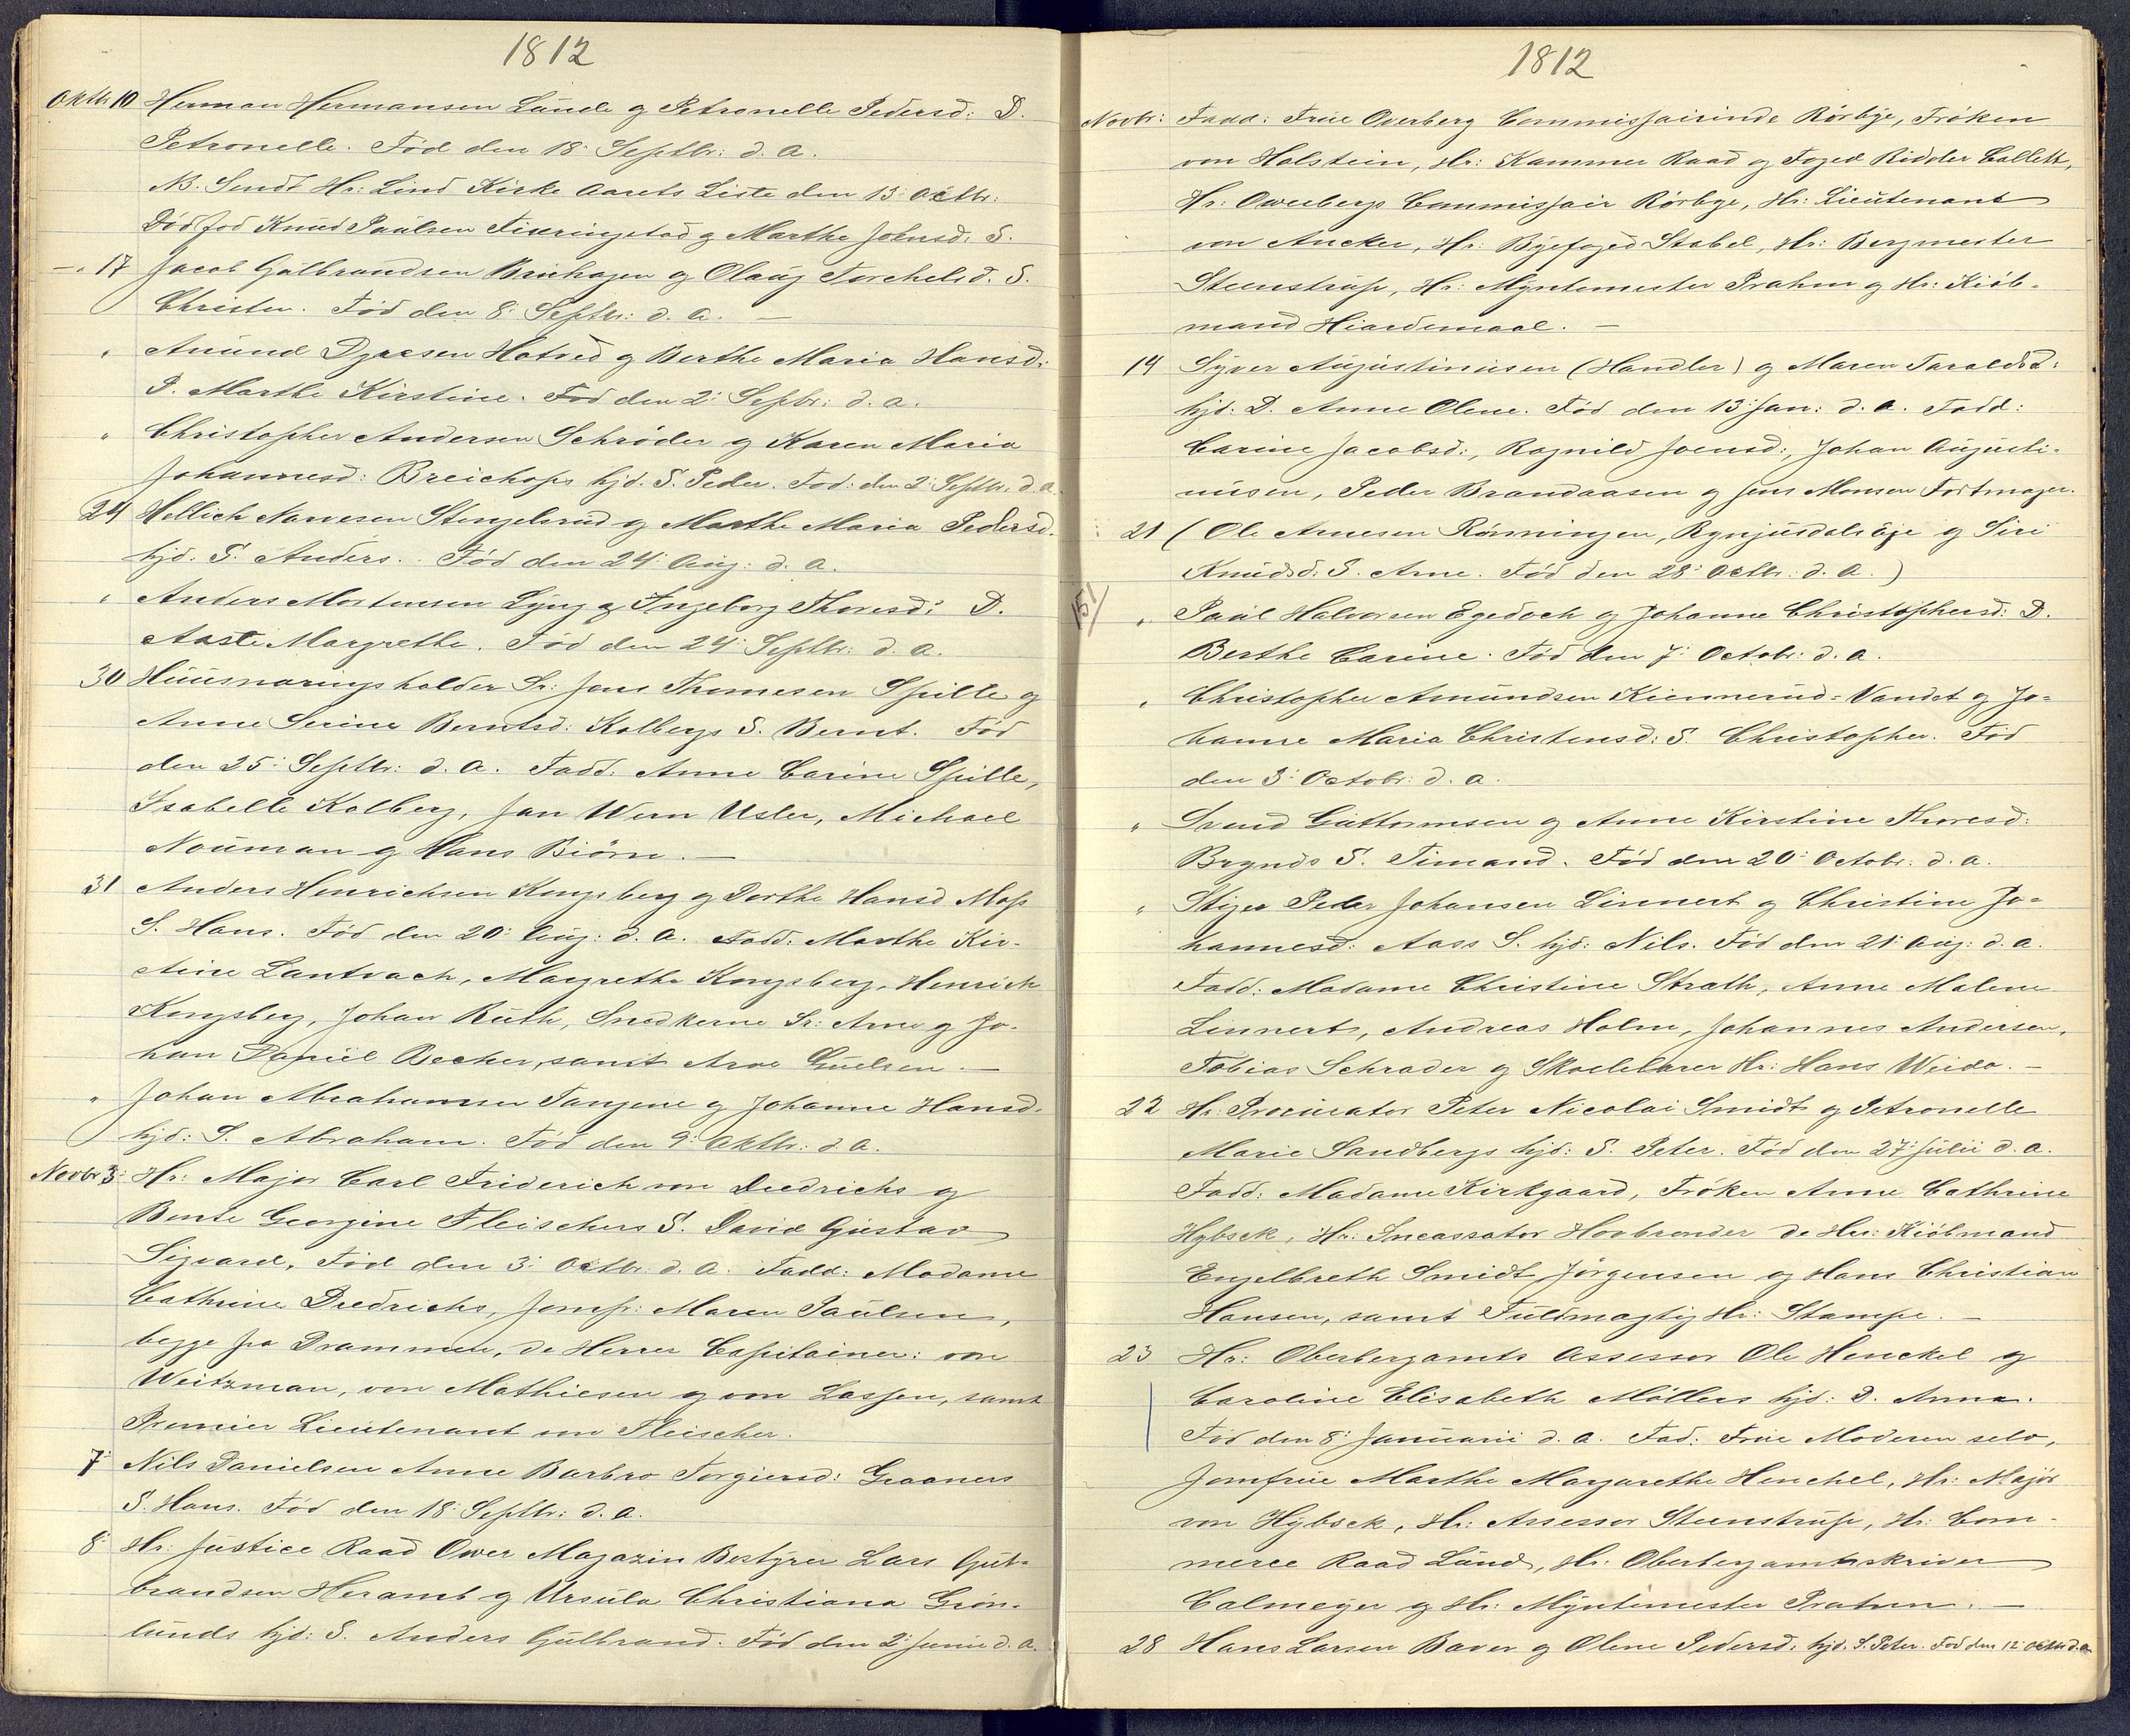 1812
Oktbr 10 Herman Hermansen Lunde og Petronelle Pedersd: D.
Petronelle. Fød den 18: Septbr: d. a.
NB. Sendt Hr: Lind Kirke Aarets Liste den 13: Octbr:
Død fød Knud Paulsen Tixringstad og Marthe Johnsd: S.
— " 17 Jacob Gulbrandsen Bruhagen og Olaug Torchelsd. S.
Christen. Fød den 8: Septbr: d. a. —
" Amund Dyresen Hotved og Berthe Maria Hansd:
D. Marthe Kirstine. Fød den 2: Septbr: d. a.
" Christopher Andersen Schrøder og Karen Maria
Johannesd: Breichops hjd. S. Peder. Fød: den 2: Septbr. d. a.
24 Hellich Narvesen Stengelsrud og Marthe Maria Pedersd.
hjd. S. Anders. Fød den 24: Aug: d. a.
" Anders Mortensen Lyng og Ingeborg Thoresd: D.
Aaste Margrethe. Fød den 24: Septbr: d. a.
30 Huusnæringsholder Sr: Jens Thomesen Spille og
Anne Serine Berntsd: Kolbergs S. Bernt. Fød
den 25: Septbr: d. a. Fadd. Anne Carine Spille,
Isabelle Kolberg, Jan Wern Usler, Michael
Nouman og Hans Biörn. —
31 Anders Henrichsen Kongsberg og Dorthe Hansd Moss
S. Hans. Fød den 20: Aug: d. a. Fadd. Marthe Kir-
stine Lantvach, Margrethe Kongsberg, Henrich
Kongsberg, Johan Ruth, Snedkerne Sr: Arne og Jo-
han Daniel Becker, samt Arve Guelsen. —
" Johan Abrahamsen Tangene og Johanne Hansd.
hjd: S. Abraham. Fød den 9: Oktbr: d. a.
Novbr 3: Hr: Major Carl Friderich von Diedrichs og
Bente Georgine Fleischers S. David Gustav
Sigvard. Fød den 3: Octbr: d. a. Fadd: Madame
Cathrine Diedrichs, Jomfr: Maren Paulsen,
begge fra Drammen, de Herrer Capitainer: von
Weitzman, von Mathiesen og von Lassen, samt
Premier Lieutenant von Fleischer.
7 Nils Danielsen Anne Barbro Torgiersd: Graaners
S. Hans. Fød den 18: Septbr: d. a.
8 Hr: Justice Raad Over Magazin Bestyrer Lars Gul-
brandsen Heramb og Ursula Christiana Grön-
lunds hjd: S. Anders Gulbrand. Fød den 2: Junii d. a.
1812
Novbr: Fadd: Frue Overberg Commissairinde Rörbye, Fröken
von Holstein, Hr: Kammer Raad og Foged Ridder Collett,
Hr: Overbergs Commissair Rörbye, Hr: Lieutenant
von Ancker, Hr: Byefoged Stabel, Hr: Bergmester
Steenstrup, Hr: Myntemester Prahm og Hr: Kiöb-
mand Hiardemaal. —
14 Syver Augustinusen (Handler) og Maren Taraldsd:
hjd: D. Anne Olene. Fød den 13: Jan: d. a. Fadd:
Carine Jacobsd:, Ragnild Joensd:, Johan Augusti-
nusen, Peder Brandaasen og Jens Monsen Fortmager.
21 (Ole Arnesen Rönningen, Ryngusdals Eje og Siri
Knudsd: S. Arne. Fød den 28: Octbr: d. a.)
151
" Paul Halvorsen Egedoch og Johanne Christophersd: D.
Berthe Carine. Fød den 7: Octobr: d. a.
" Christopher Amundsen Kiennerud-Vandet og Jo-
hanne Maria Christensd: S. Christopher. Fød
den 3: Octobr: d. a.
" Svend Guttormsen og Anne Kirstine Thoresd:
Brynds S. Timand. Fød den 20: Octobr: d. a.
" Stiger Peder Johansen Linnert og Christine Jo-
hannesd: Aass S. hjd: Nils. Fød den 21: Aug: d. a.
Fadd: Madame Christine Strath, Anne Malene
Linnerts, Andreas Holm, Johannes Andersen,
Tobias Schrader og Skoelelærer Hr: Hans Weido. —
22 Hr: Procurator Peter Nicolai Smidt og Petronelle
Marie Sandbergs hjd: S. Peter. Fød den 27: Julii d. a.
Fadd: Madame Kirkgaard, Fröken Anne Cathrine
Hybsck, Hr: Incassator Hovbrender de Hrr: Kiöbmand
Engelbreth Smidt, Jörgensen og Hans Christian
Hansen, samt Fuldmægtig Hr: Stampe. —
23 Hr: Oberbergamts Assessor Ole Henckel og
Caroline Elisabeth Möllers hjd: D. Anna.
Fød den 8: Januarii d. a. Fad: Frue Moderen selv,
Jomfrue Marthe Margarethe Henchel, Hr: Major
von Hybsck, Hr: Assessor Steenstrup, Hr: Com-
merce Raad Lund, Hr: Oberbergamtskriver
Calmeyer og Hr: Myntemester Prahm. —
28 Hans Larsen Baver og Olene Pedersd. hjd. S. Peter. Fød den 12: Octbr d. a.